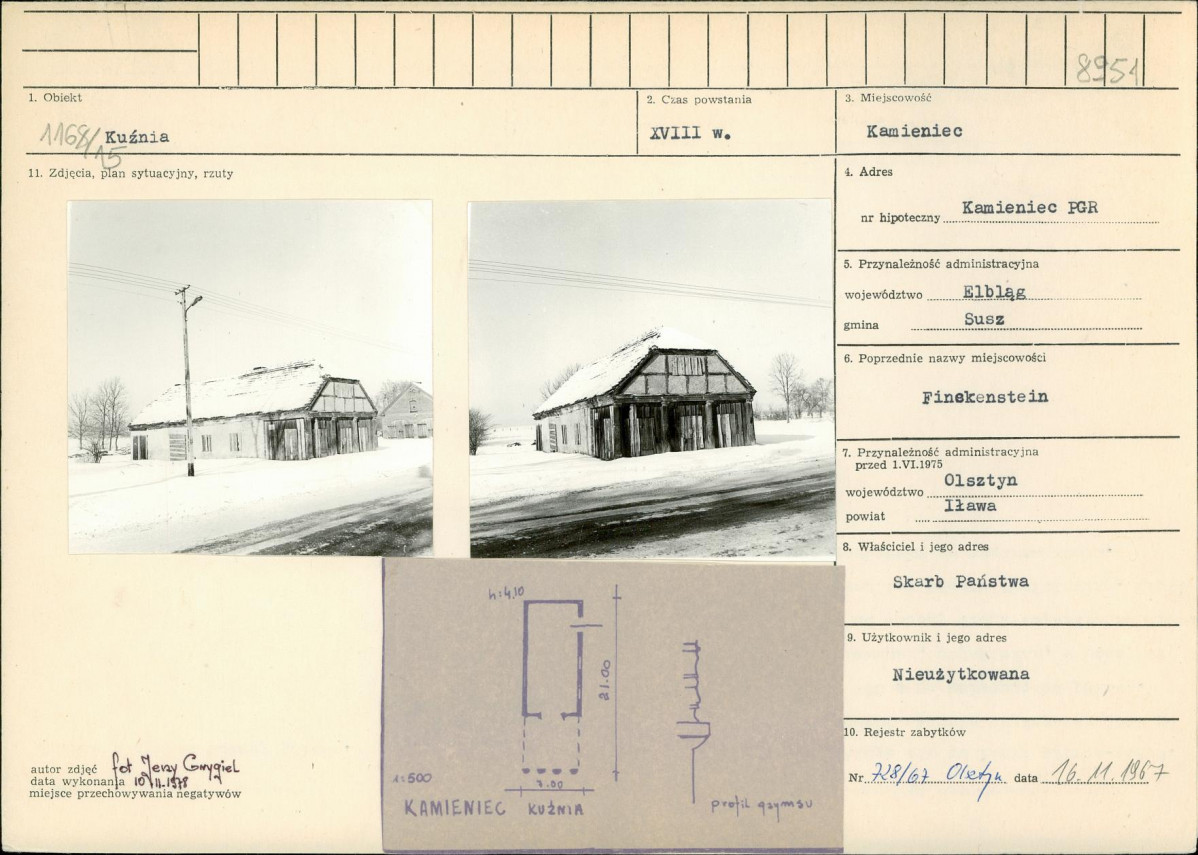 8951
1. Obiekt
1168/15 Kuźnia
2. Czas powstania
XVIII w.
3. Miejscowość
Kamieniec
11. Zdjęcia, plan sytuacyjny, rzuty
4. Adres
nr hipoteczny Kamieniec PGR
5. Przynależność administracyjna
województwo Elbląg
gmina Susz
6. Poprzednie nazwy miejscowości
Finekenstein
7. Przynależność administracyjna
przed 1.VI.1975
województwo Olsztyn
powiat Iława
8. Właściciel i jego adres
Skarb Państwa
9. Użytkownik i jego adres
Nieużytkowana
10. Rejestr zabytków
Nr. 728/67 Olsztyn data 16.11.1967
h=4.10
21.00
7.00
1:500
KAMIENIEC KUŹNIA
profil gzymsu
autor zdjęć fot Jerzy Grygiel
data wykonania 10.II.1978
miejsce przechowywania negatywów